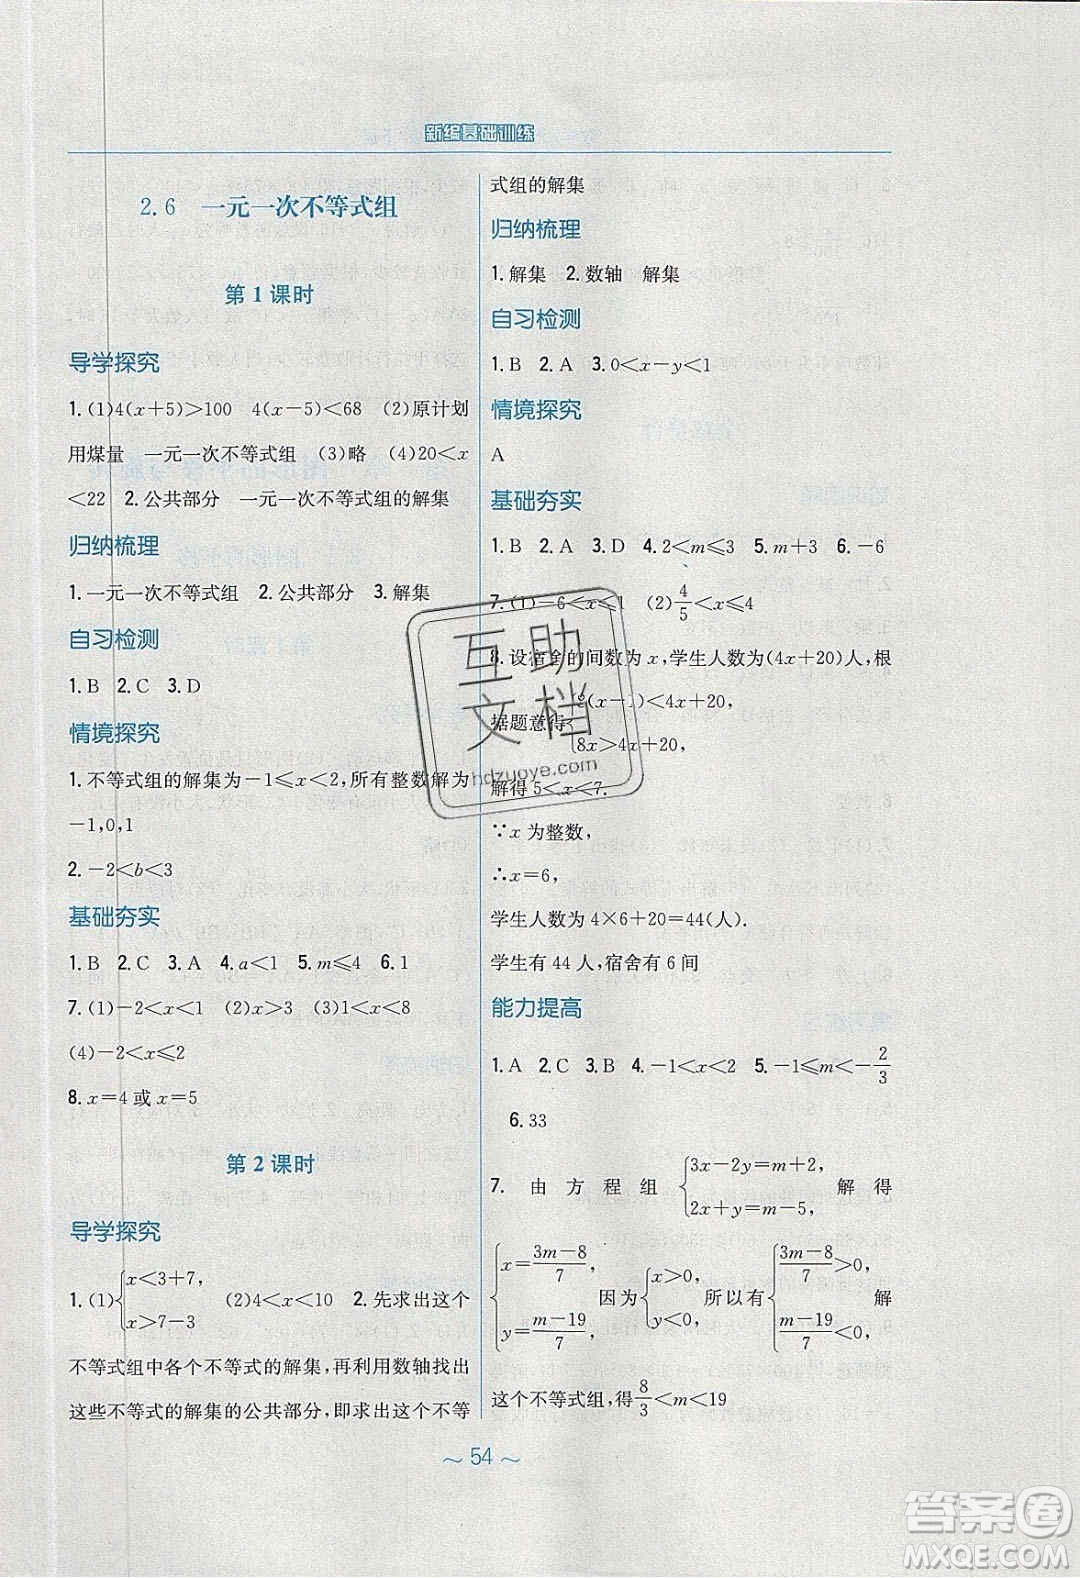 新编基础训练
2.6 一元一次不等式组
第1课时
导学探究
1.(1)4(x+5)>100 4(x-5)<68 (2)原计划
用煤量 一元一次不等式组 (3)略 (4)20<x
<22 2.公共部分 一元一次不等式组的解集
归纳梳理
1.一元一次不等式组 2.公共部分 3.解集
自习检测
1.B 2.C 3.D
情境探究
1.不等式组的解集为-1≤x<2,所有整数解为
-1,0,1
2.-2<b<3
基础夯实
1.B 2.C 3.A 4.a<1 5.m≤4 6.1
7.(1)-2<x<1 (2)x>3 (3)1<x<8
(4)-2<x≤2
8.x=4或x=5
第2课时
导学探究
1.(1){x<3+7, x>7-3 (2)4<x<10 2.先求出这个
不等式组中各个不等式的解集,再利用数轴找出
这些不等式的解集的公共部分,即求出这个不等
式组的解集
归纳梳理
1.解集 2.数轴 解集
自习检测
1.B 2.A 3.0<x-y<1
情境探究
A
基础夯实
1.B 2.A 3.D 4.2<m≤3 5.m+3 6.-6
7.(1)-6<x≤1 (2)4/5<x≤4
8.设宿舍的间数为x,学生人数为(4x+20)人,根
据题意得{8(x-1)<4x+20, 8x>4x+20,
解得5<x<7.
∵x为整数,
∴x=6,
学生人数为4×6+20=44(人).
学生有44人,宿舍有6间
能力提高
1.A 2.C 3.B 4.-1<x<2 5.-1≤m<-2/3
6.33
7. 由方程组{3x-2y=m+2, 2x+y=m-5, 解得
{x=(3m-8)/7, y=(m-19)/7, 因为{x>0, y<0, 所以有{(3m-8)/7>0, (m-19)/7<0, 解
这个不等式组,得8/3<m<19
～54～
互助
文档
hdzuoye.com
答案圈
MXQE.COM